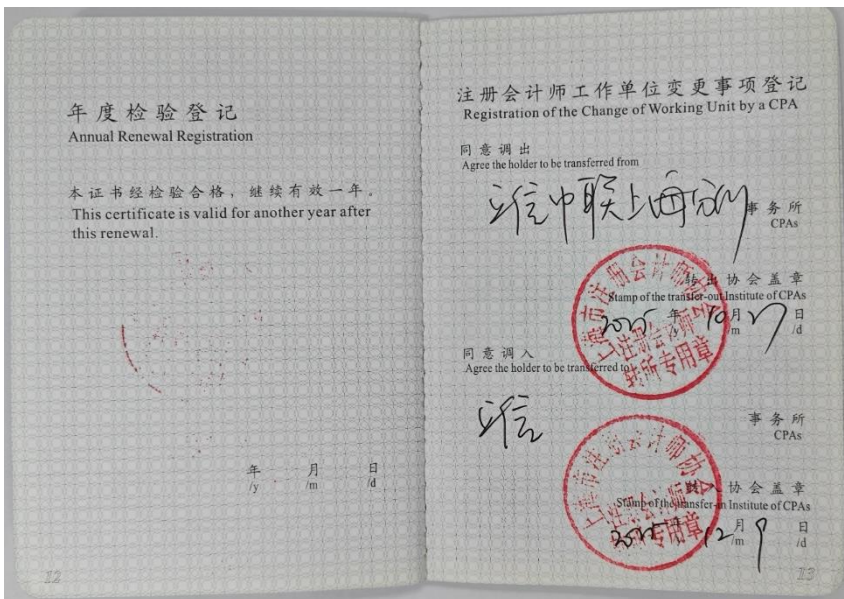 年度检验登记
Annual Renewal Registration
本证书经检验合格，继续有效一年。
This certificate is valid for another year after
this renewal.
年 月 日
/y /m /d
12
注册会计师工作单位变更事项登记
Registration of the Change of Working Unit by a CPA
同意调出
Agree the holder to be transferred from
立信中联上海分所 事务所
CPAs
上海市注册会计师协会
注册会计师
转所专用章
转出协会盖章
Stamp of the transfer-out Institute of CPAs
2025 年 10 月 27 日
/y /m /d
同意调入
Agree the holder to be transferred to
立信 事务所
CPAs
上海市注册会计师协会
注册会计师
转所专用章
转入协会盖章
Stamp of the transfer-in Institute of CPAs
2025 年 12 月 9 日
/m /d
13